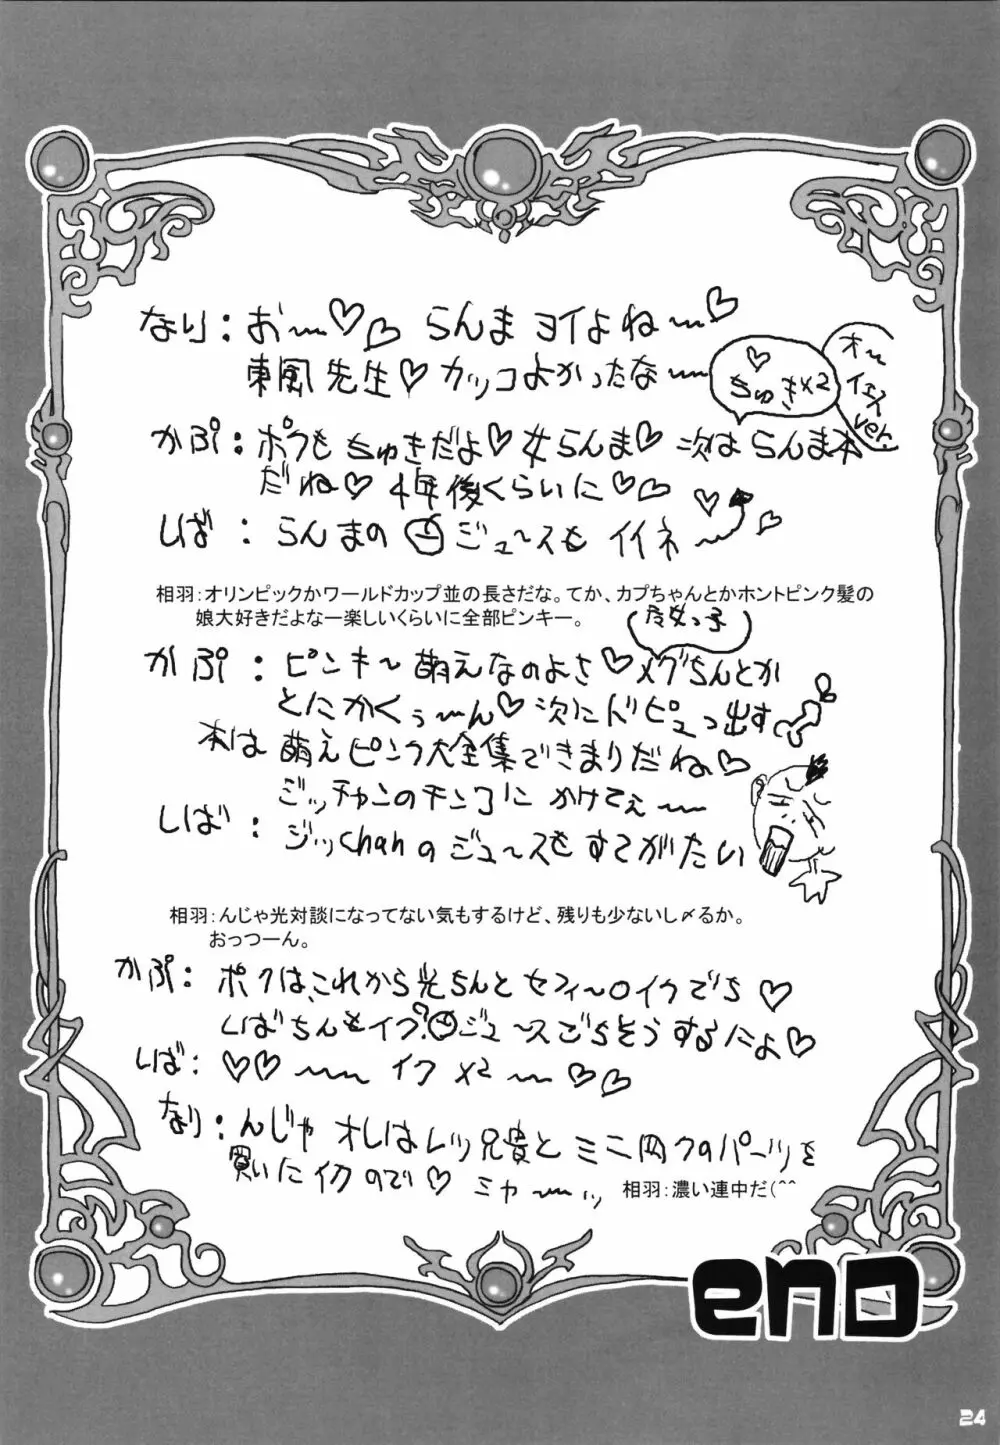 なり：おー〜♡♡ らんまヨイよね〜
東風先生♡カッコよかったな〜
♡ちゅき×2
オーイェイver.
かぷ：ボクもちゅきだよ♡女らんま♡次はらんま本
だね♡4年後くらいに♡♡
しば：らんまの ジュースもイイネ〜
相羽：オリンピックかワールドカップ並の長さだな。てか、カプちゃんとかホントピンク髪の
娘大好きだよなー楽しいくらいに全部ピンキー。
かぷ：ピンキー萌えなのよさ♡メグちんとか
とにかくぅーん♡次にドピュっ出す
本は萌えピンク大全集できまりだね♡
ジッチャンのチンコにかけてぇー
しば：ジッchanのジュースもすてがたい
相羽：んじゃ光対談になってない気もするけど、残りも少ないし〆るか。
おっつーん。
かぷ：ボクは、これから光ちんとセフィーロイクでち♡
しばちんもイク? ジュースごちそうするにょ♡
しば：♡♡〜イク×2〜♡♡
なり：んじゃオレはレッツ兄貴とミニ四クのパーツを
買いにイクので♡ミャーッ
相羽：濃い連中だ(^^
end
24